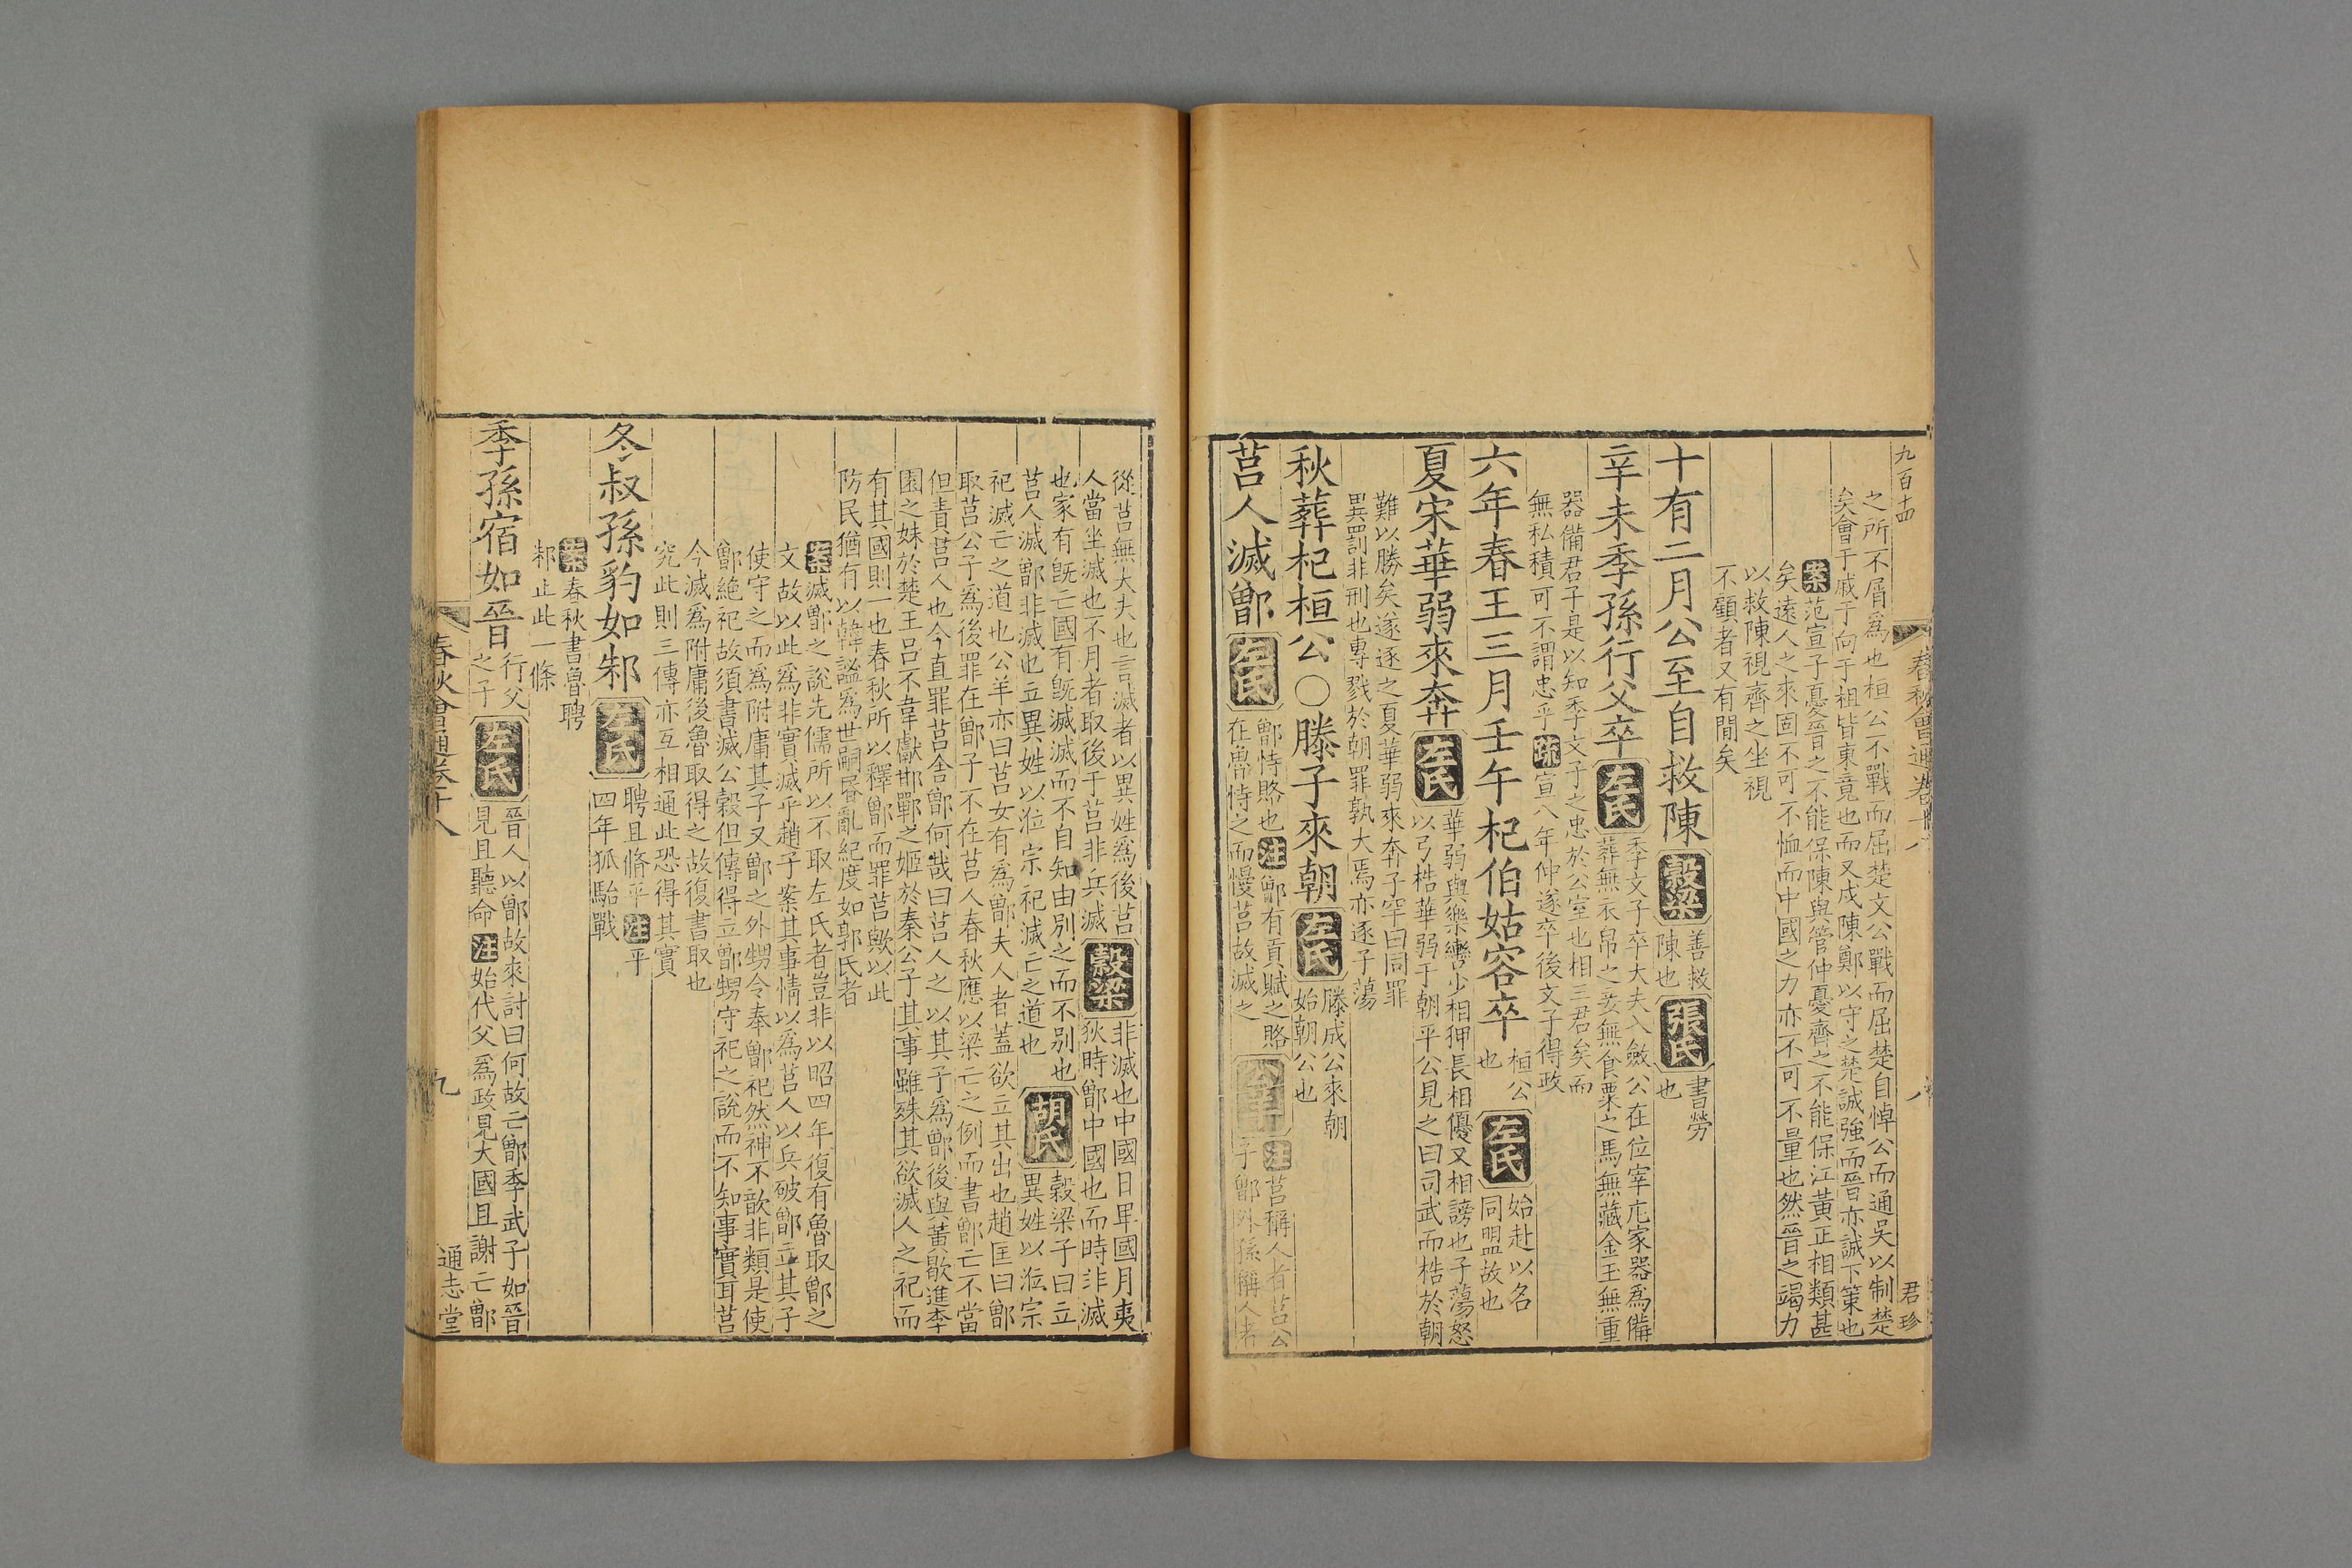 九百十四
春秋會通卷十八
八
君珍
之所不屑爲也桓公不戰而屈楚文公戰而屈楚自悼公而通吳以制楚
矣會于戚于向于祖皆東竟也而又戍陳鄭以守之楚誠強而晉亦誠下策也
案范宣子憂晉之不能保陳與管仲憂齊之不能保江黃正相類甚
矣遠人之來固不可不恤而中國之力亦不可不量也然晉之竭力
以救陳視齊之坐視
不顧者又有閒矣
十有二月公至自救陳穀梁善救
陳也張氏書勞
也
辛未季孫行父卒左氏季文子卒大夫入斂公在位宰庀家器爲備
葬無衣帛之妾無食粟之馬無藏金玉無重
器備君子是以知季文子之忠於公室也相三君矣而
無私積可不謂忠乎疏宣八年仲遂卒後文子得政
六年春王三月壬午杞伯姑容卒桓公
也左氏始赴以名
同盟故也
夏宋華弱來奔左氏華弱與樂轡少相狎長相優又相謗也子蕩怒
以弓梏華弱于朝平公見之曰司武而梏於朝
難以勝矣遂逐之夏華弱來奔子罕曰同罪
異罰非刑也專戮於朝罪孰大焉亦逐子蕩
秋葬杞桓公○滕子來朝左氏滕成公來朝
始朝公也
莒人滅鄫左氏鄫恃賂也注鄫有貢賦之賂
在魯恃之而慢莒故滅之公羊注莒稱人者莒公
子鄫外孫稱人者
從莒無大夫也言滅者以異姓爲後莒
人當坐滅也不月者取後于莒非兵滅穀梁非滅也中國日卑國月夷
狄時鄫中國也而時非滅
也家有旣亡國有旣滅滅而不自知由別之而不別也
莒人滅鄫非滅也立異姓以涖宗祀滅亡之道也胡氏穀梁子曰立
異姓以涖宗
祀滅亡之道也公羊亦曰莒女有爲鄫夫人者蓋欲立其出也趙匡曰鄫
取莒公子爲後罪在鄫子不在莒人春秋應以梁亡之例而書鄫亡不當
但責莒人也今直罪莒舍鄫何哉曰莒人之以其子爲鄫後與黃歇進李
園之妹於楚王呂不韋獻邯鄲之姬於秦公子其事雖殊其欲滅人之祀而
有其國則一也春秋所以釋鄫而罪莒歟以此
防民猶有以韓謐爲世嗣昏亂紀度如郭氏者
案滅鄫之說先儒所以不取左氏者豈非以昭四年復有魯取鄫之
文故以此爲非實滅乎趙子案其事情以爲莒人以兵破鄫立其子
使守之而爲附庸其子又鄫之外甥令奉鄫祀然神不歆非類是使
鄫絶祀故須書滅公穀但傳得立鄫甥守祀之說而不知事實耳莒
今滅爲附庸後魯取得之故復書取也
究此則三傳亦互相通此恐得其實
冬叔孫豹如邾左氏聘且脩平注平
四年狐駘戰
案春秋書魯聘
邾止此一條
季孫宿如晉行父
之子左氏晉人以鄫故來討曰何故亡鄫季武子如晉
見且聽命注始代父爲政見大國且謝亡鄫
春秋會通卷十八
九
通志堂